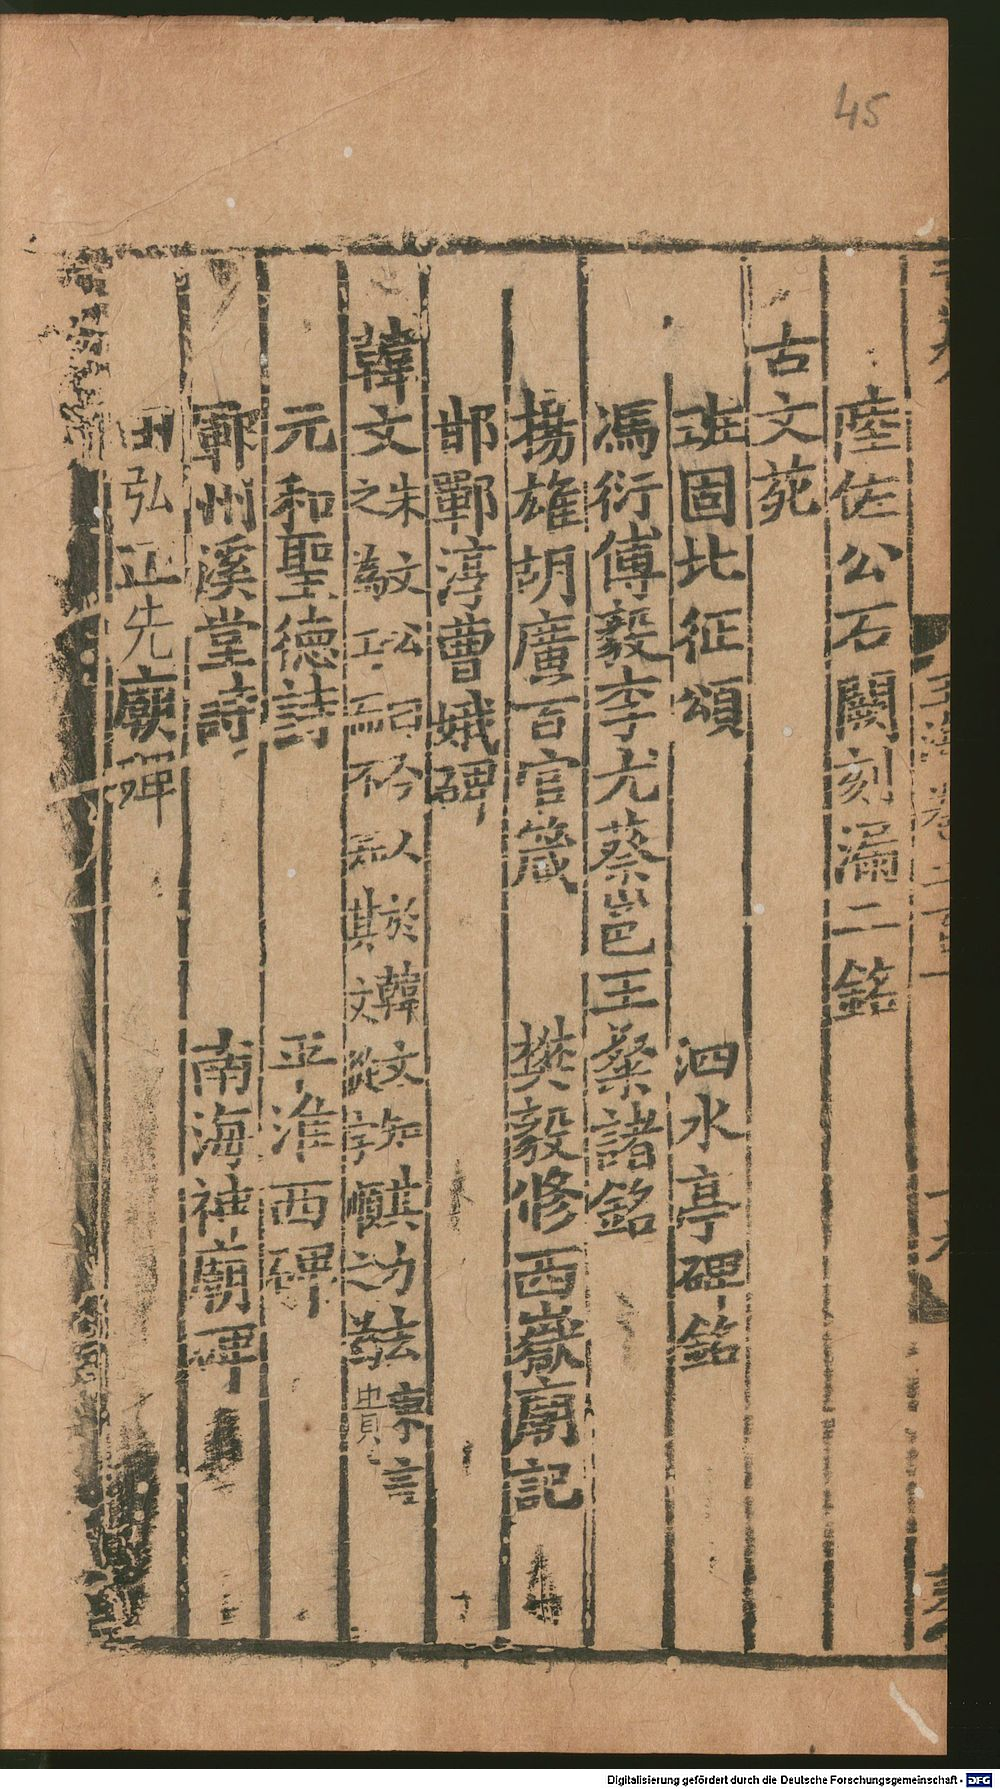 45
陸佐公石闕刻漏二銘
古文苑
班固北征頌 泗水亭碑銘
馮衍傅毅李尤蔡邕王粲諸銘
揚雄胡廣百官箴 樊毅修西嶽廟記
邯鄲淳曹娥碑
韓文
朱文公曰今人於韓文知其力去陳言
之為工而不知其文從字順之為貴
元和聖德詩 平淮西碑
鄆州溪堂詩 南海神廟碑
田弘正先廟碑
Digitalisierung gefördert durch die Deutsche Forschungsgemeinschaft - DFG